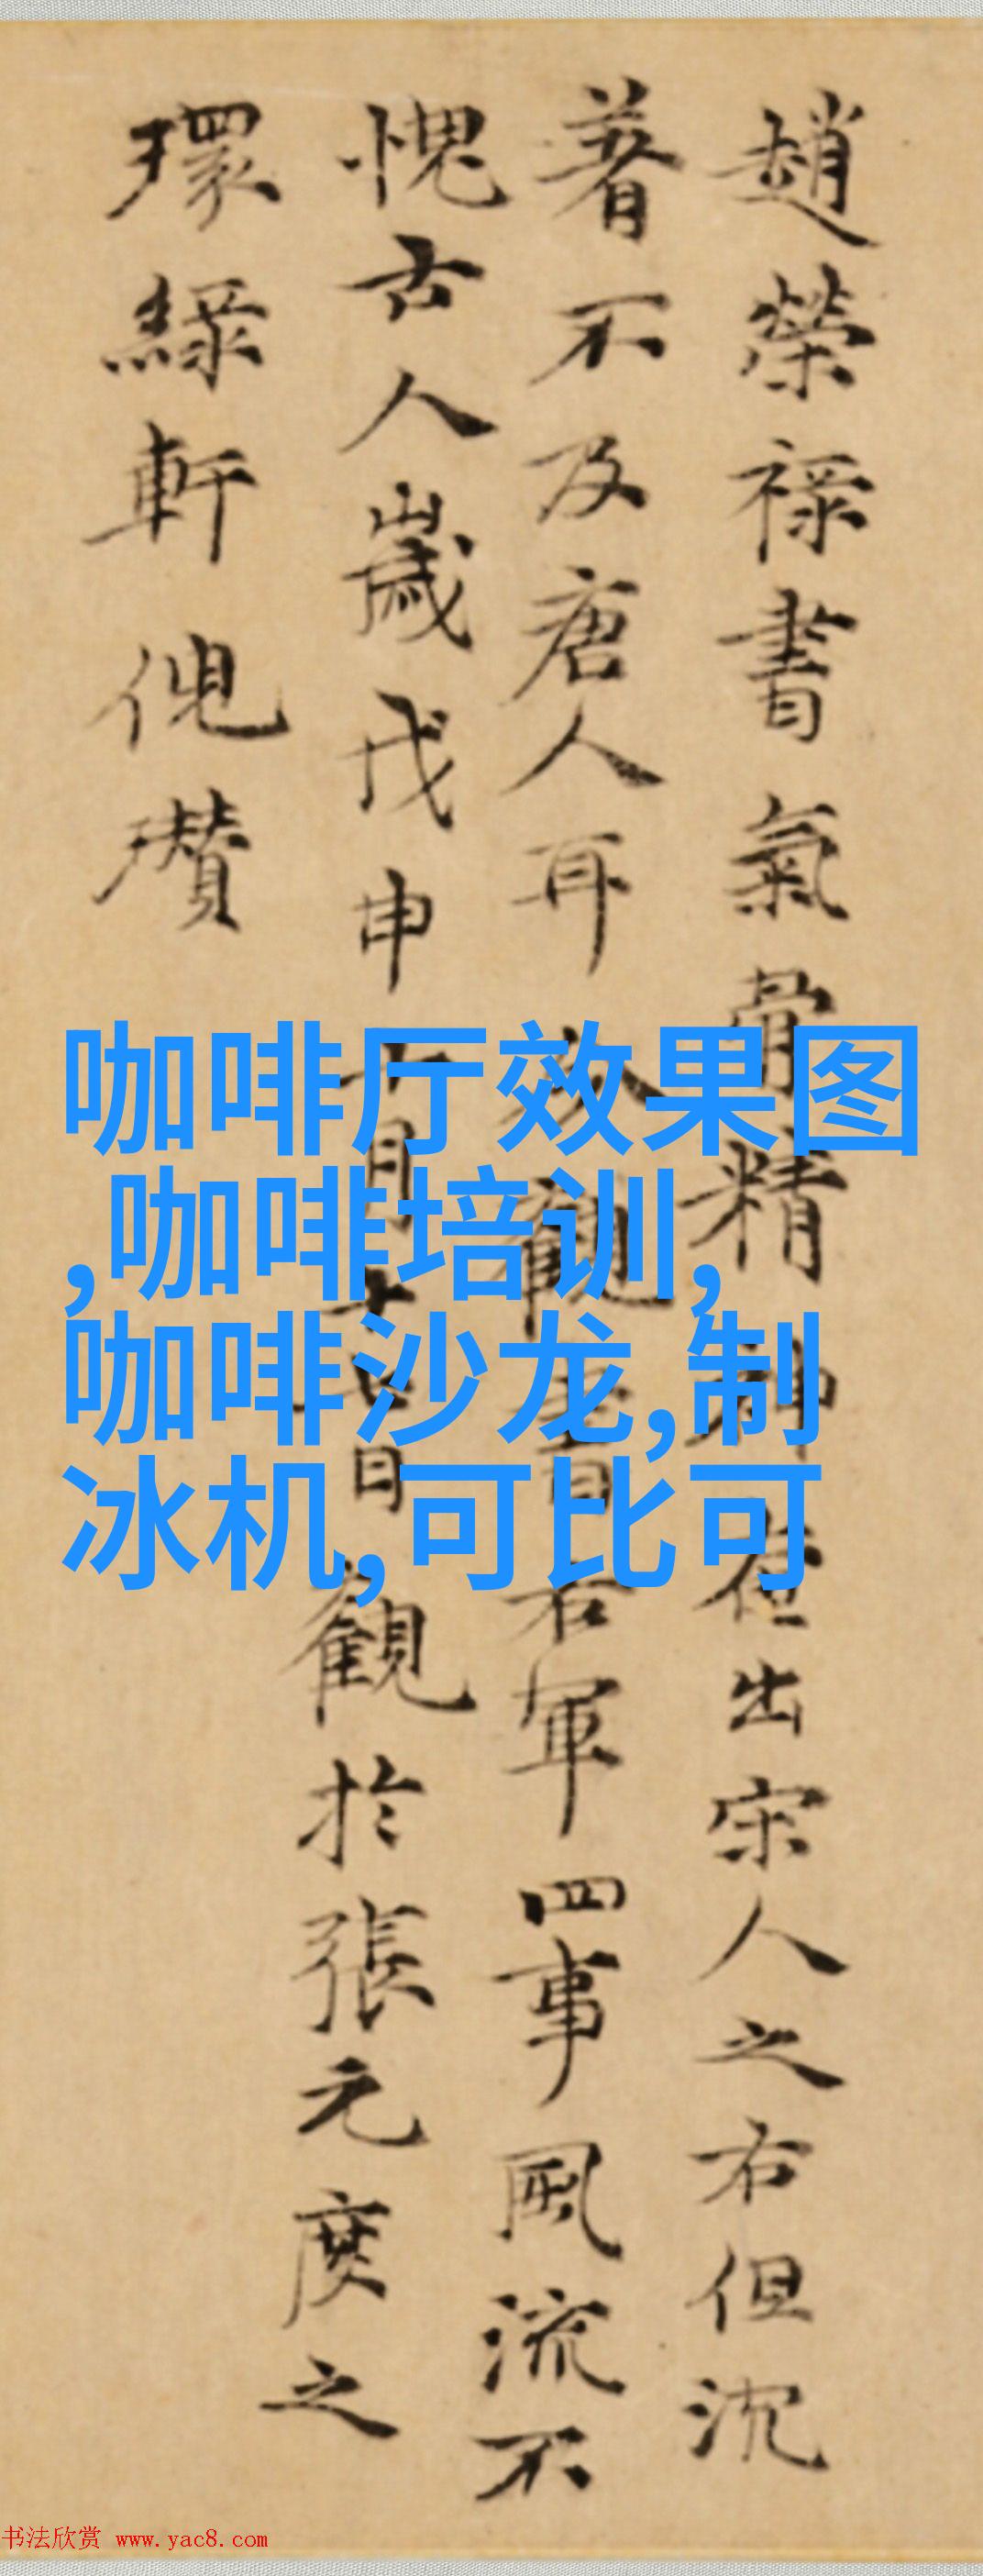 趙榮祿書氣骨精神在出宋人之右但沈
著不及唐人耳觀書右軍四事風流不
愧古人歲戊申十月十七日觀於張元度之
環綠軒倪瓚
咖啡厅效果图
,咖啡培训,
咖啡沙龙,制
冰机,可比可
书法欣赏 www.yac8.com